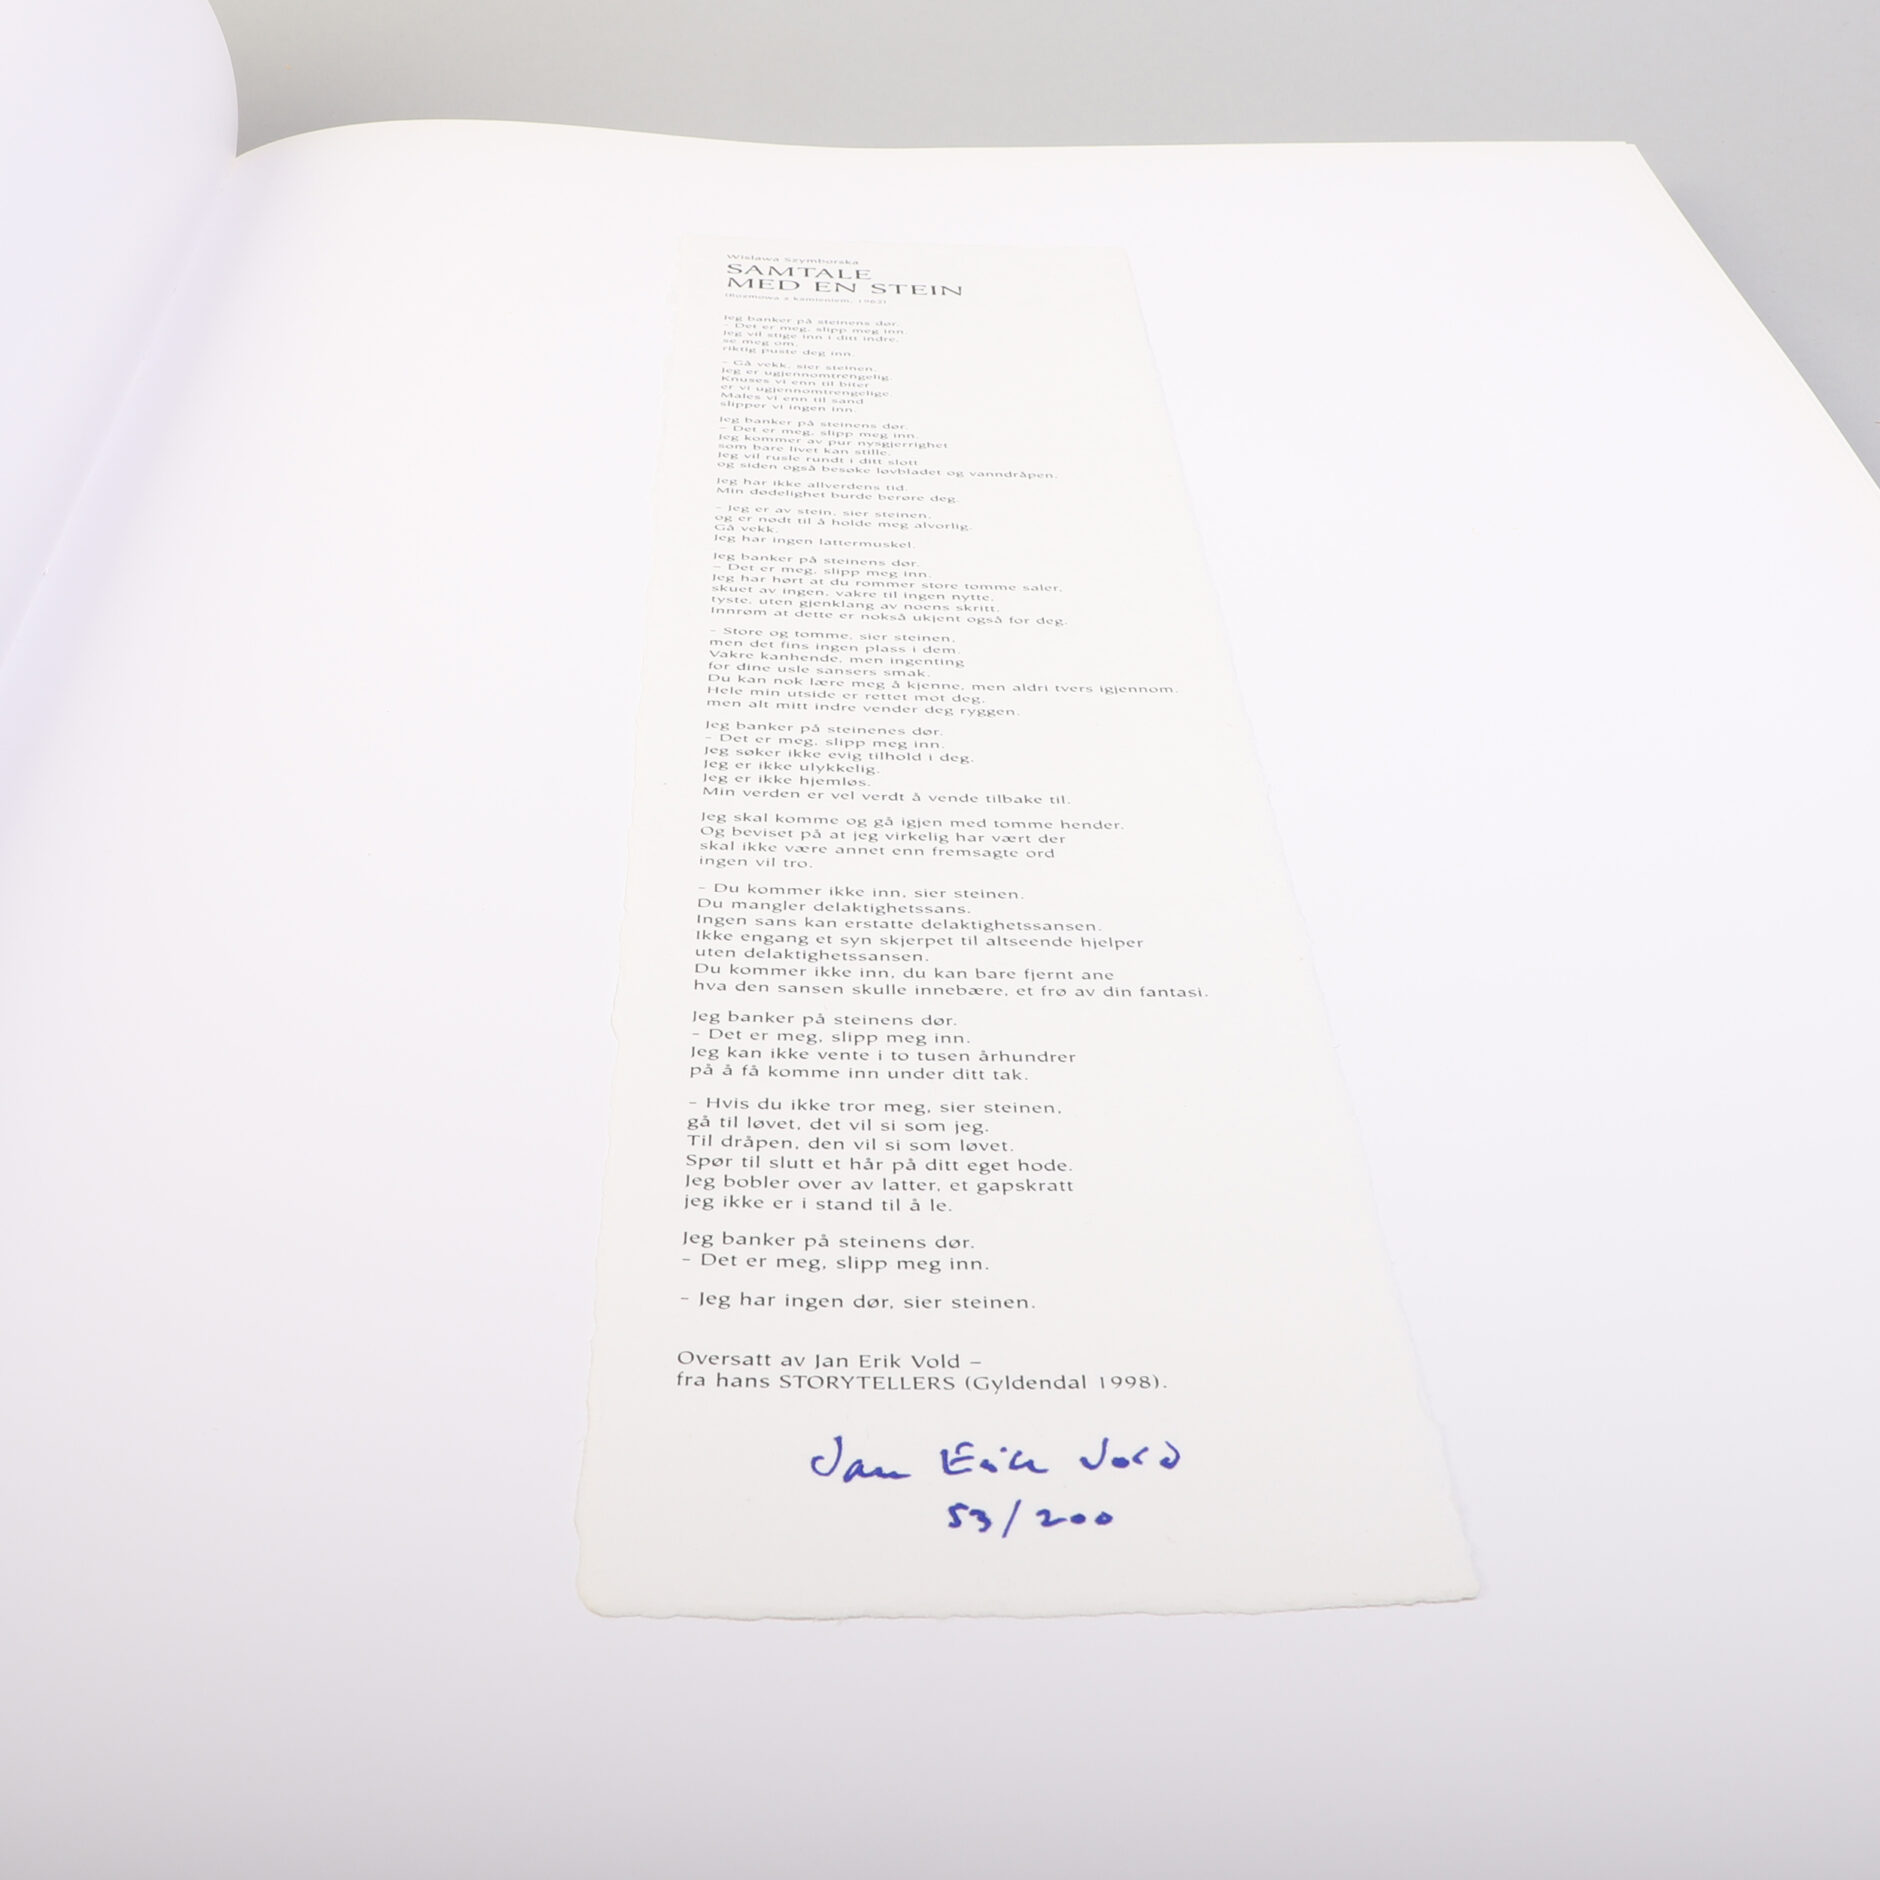 Wisława Szymborska
SAMTALE
MED EN STEIN
(Rozmowa z kamieniem, 1962)
Jeg banker på steinens dør.
– Det er meg, slipp meg inn.
Jeg vil stige inn i ditt indre,
se meg om,
riktig puste deg inn.
– Gå vekk, sier steinen.
Jeg er ugjennomtrengelig.
Knuses vi enn til biter
er vi ugjennomtrengelige.
Males vi enn til sand
slipper vi ingen inn.
Jeg banker på steinens dør.
– Det er meg, slipp meg inn.
Jeg kommer av pur nysgjerrighet
som bare livet kan stille.
Jeg vil rusle rundt i ditt slott
og siden også besøke løvbladet og vanndråpen.
Jeg har ikke allverdens tid.
Min dødelighet burde berøre deg.
– Jeg er av stein, sier steinen,
og er nødt til å holde meg alvorlig.
Gå vekk.
Jeg har ingen lattermuskel.
Jeg banker på steinens dør.
– Det er meg, slipp meg inn.
Jeg har hørt at du rommer store tomme saler,
skuet av ingen, vakre til ingen nytte,
tyste, uten gjenklang av noens skritt.
Innrøm at dette er nokså ukjent også for deg.
– Store og tomme, sier steinen,
men det fins ingen plass i dem.
Vakre kanhende, men ingenting
for dine usle sansers smak.
Du kan nok lære meg å kjenne, men aldri tvers igjennom.
Hele min utside er rettet mot deg,
men alt mitt indre vender deg ryggen.
Jeg banker på steinenes dør.
– Det er meg, slipp meg inn.
Jeg søker ikke evig tilhold i deg.
Jeg er ikke ulykkelig.
Jeg er ikke hjemløs.
Min verden er vel verdt å vende tilbake til.
Jeg skal komme og gå igjen med tomme hender.
Og beviset på at jeg virkelig har vært der
skal ikke være annet enn fremsagte ord
ingen vil tro.
– Du kommer ikke inn, sier steinen.
Du mangler delaktighetssans.
Ingen sans kan erstatte delaktighetssansen.
Ikke engang et syn skjerpet til altseende hjelper
uten delaktighetssansen.
Du kommer ikke inn, du kan bare fjernt ane
hva den sansen skulle innebære, et frø av din fantasi.
Jeg banker på steinens dør.
– Det er meg, slipp meg inn.
Jeg kan ikke vente i to tusen århundrer
på å få komme inn under ditt tak.
– Hvis du ikke tror meg, sier steinen,
gå til løvet, det vil si som jeg.
Til dråpen, den vil si som løvet.
Spør til slutt et hår på ditt eget hode.
Jeg bobler over av latter, et gapskratt
jeg ikke er i stand til å le.
Jeg banker på steinens dør.
– Det er meg, slipp meg inn.
– Jeg har ingen dør, sier steinen.
Oversatt av Jan Erik Vold –
fra hans STORYTELLERS (Gyldendal 1998).
Jan Erik Vold
53/200